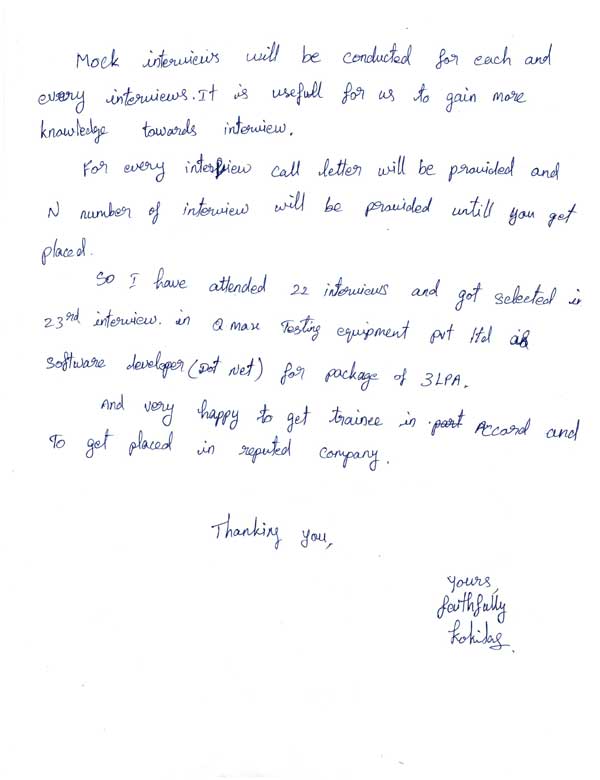 Mock interviews will be conducted for each and
every interviews. It is usefull for us to gain more
knowledge towards interview.
For every interview call letter will be provided and
N number of interview will be provided untill you get
placed.
So I have attended 22 interviews and got selected in
23rd interview. in Qmax Testing equipment pvt ltd as
Software developer (Dot Net) for package of 3LPA.
And very happy to get trainee in Accord and
To get placed in reputed company.
Thanking you,
yours,
faithfully